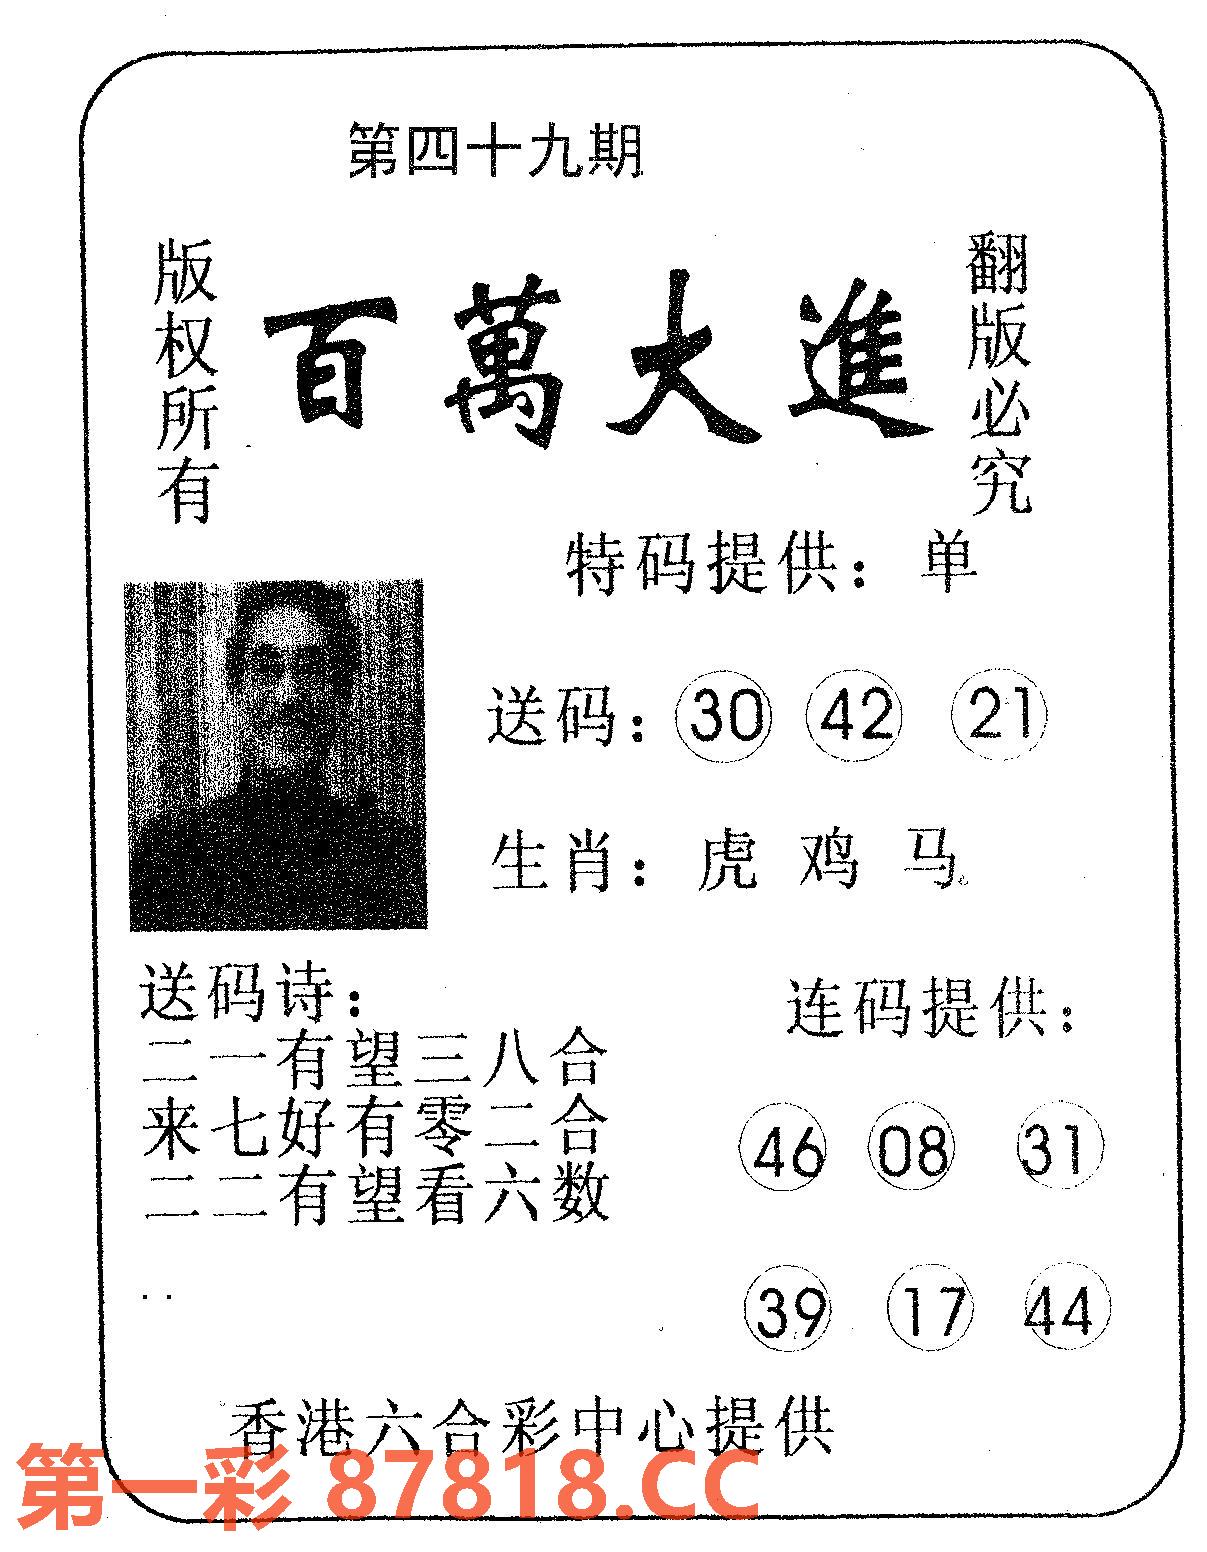 第四十九期
版权所有
百萬大進
翻版必究
特码提供：单
送码：30 42 21
生肖：虎 鸡 马
送码诗：
二一有望三八合
来七好有零二合
二二有望看六数
连码提供：
46 08 31
39 17 44
香港六合彩中心提供
第一彩 87818.CC